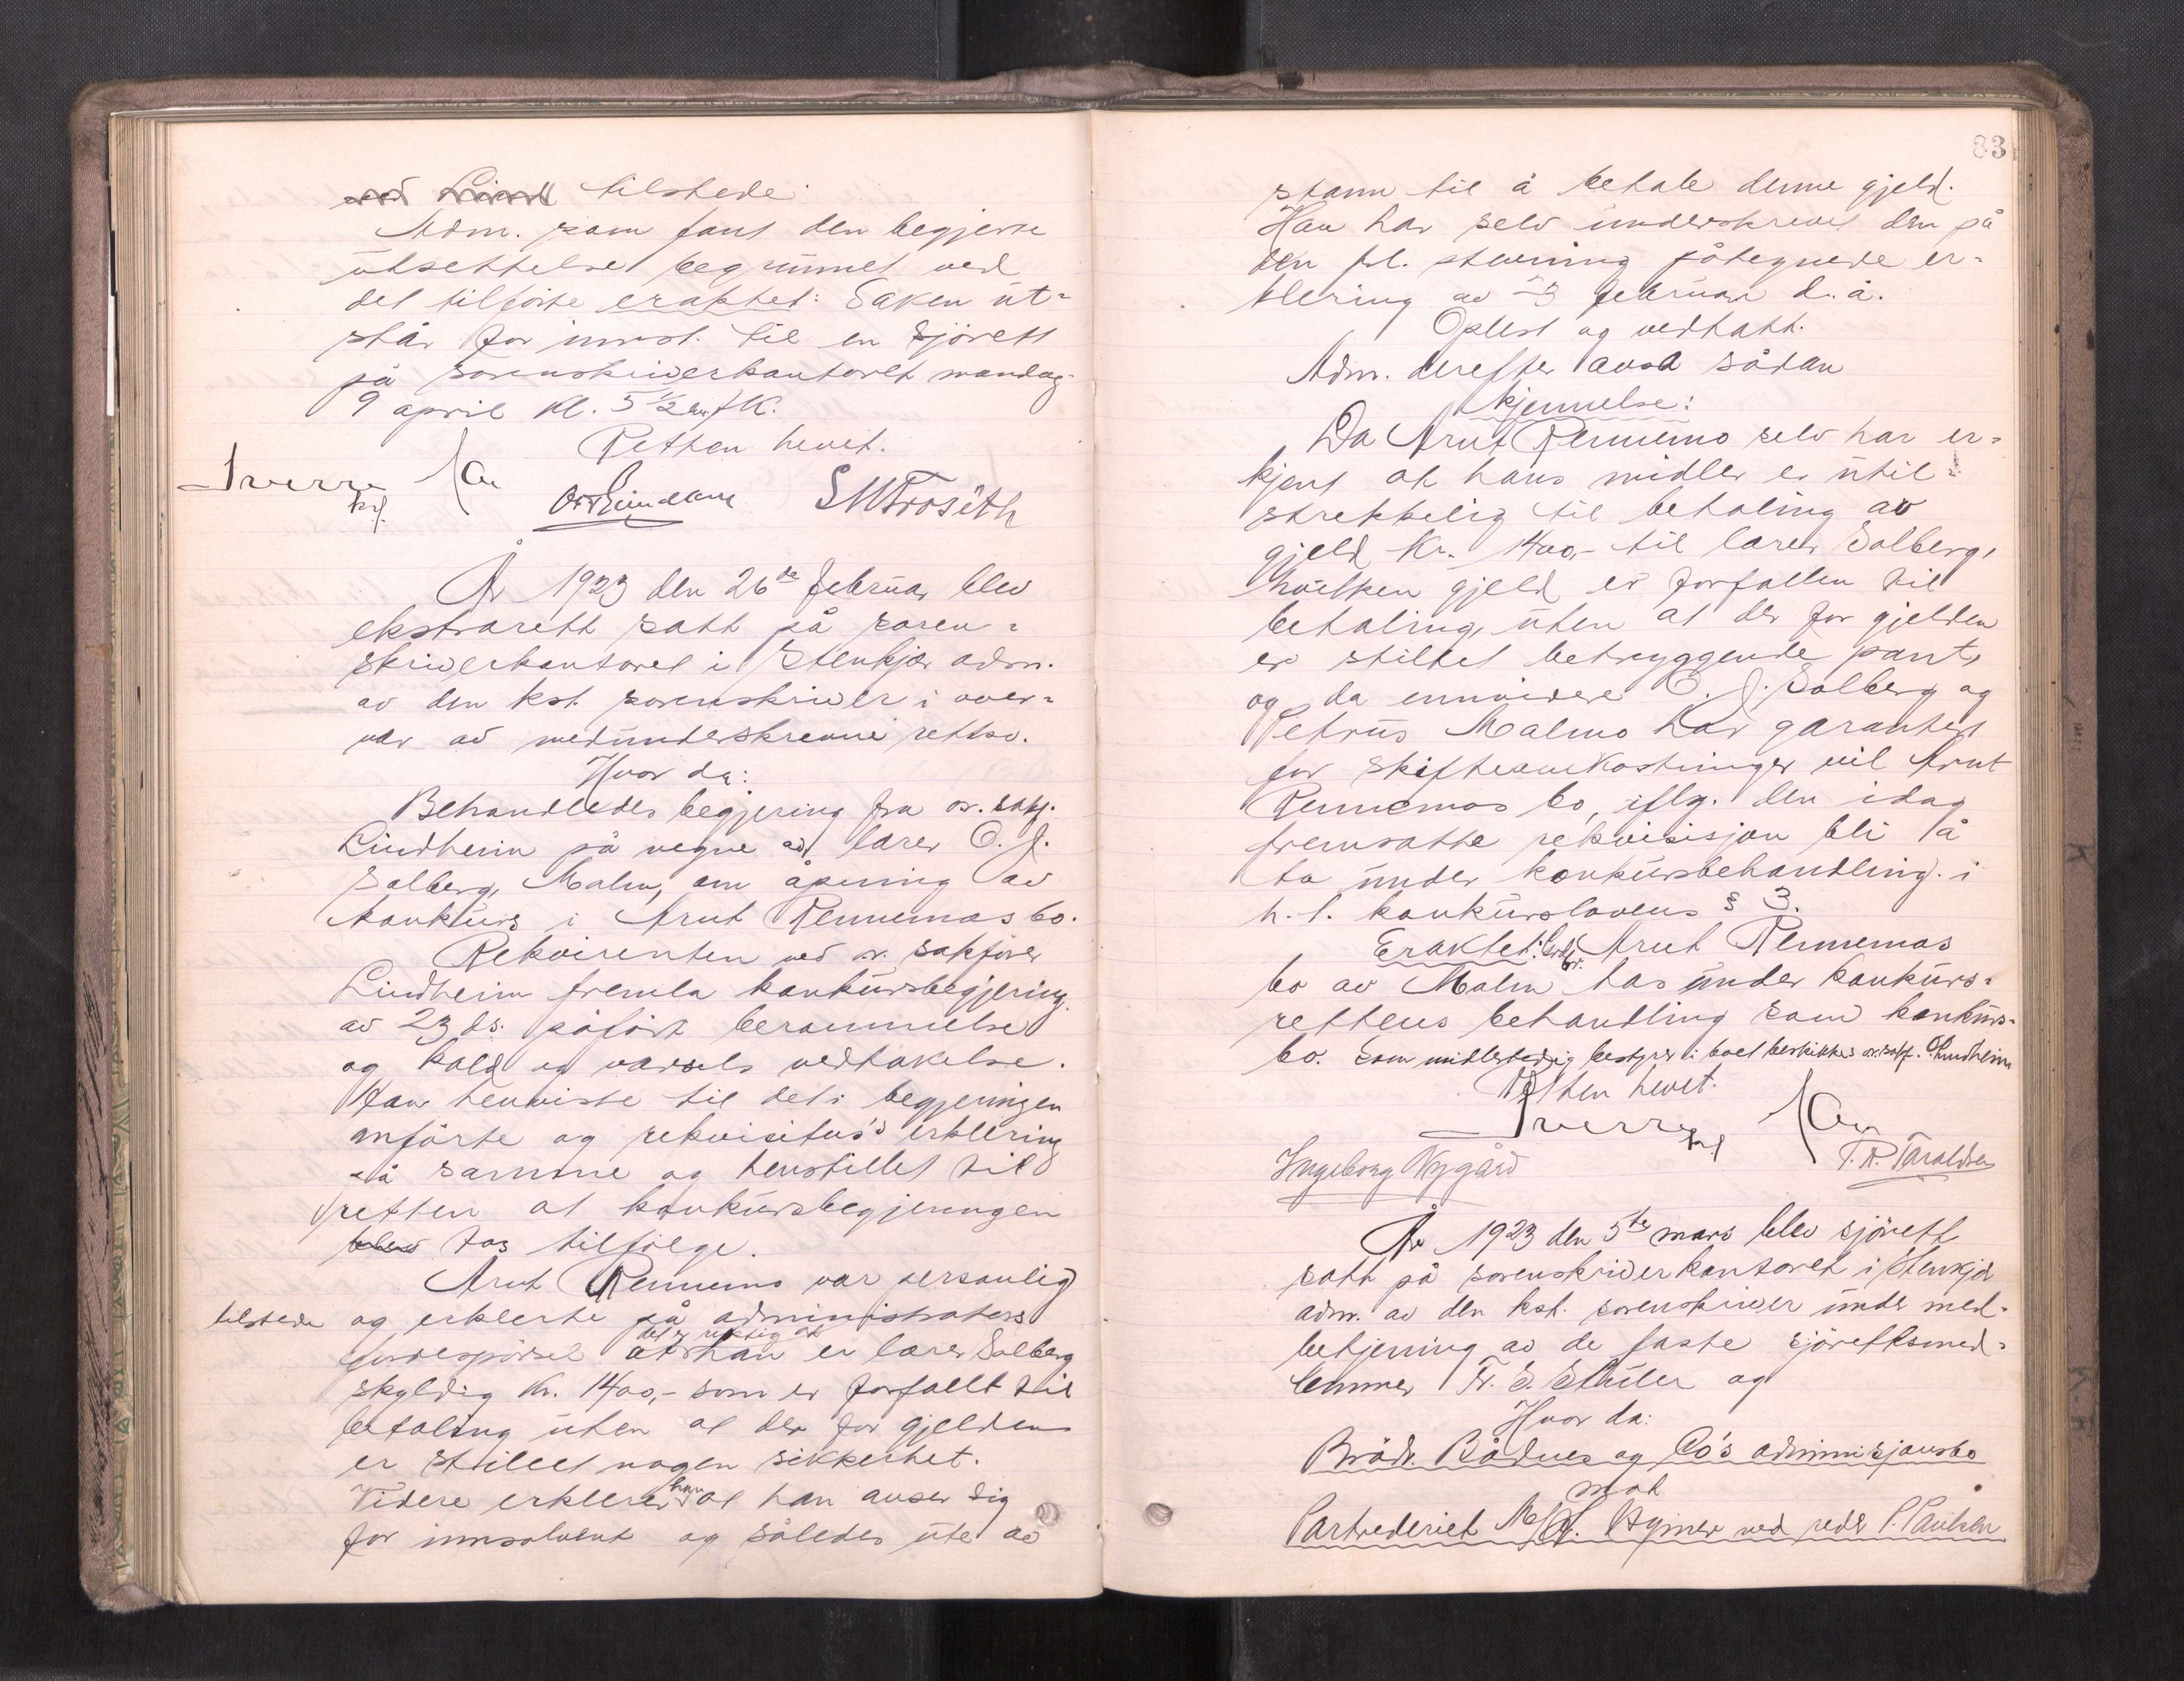 tilstede
Adm. som fant den begjerte
utsettelse begrunnet ved
det tilførte eraktet: Saken ut-
står for innst. til en sjørett
på sorenskriverkontoret mandag
9 april kl. 5 1/2 em.
Retten hevet.
Sverre
kst.
SMFroseth
År 1923 den 26de februar blev
ekstrarett satt på soren-
skriverkontoret i Stenkjær adm.
av den kst. sorenskriver i over-
vær av medunderskrevne rettsv.
Hvor da:
Behandledes begjering fra o.r. sakf.
Lindheim på vegne av lærer O. J.
Solberg, Malm, om åpning av
konkurs i Arnt Rennemos bo.
Rekvirenten ved o.r. sakfører
Lindheim fremla konkursbegjering
av 23 ds. påført berammelse
og kald og varsels vedtakelse.
Han henviste til det i begjeringen
anførte og rekvisitus's erklering
på samme og henstillet til
retten at konkursbegjeringen
blev tas tilfølge.
Arnt Rennemo var personlig
tilstede og erklerte på administrators
det er riktig at
forespørsel at han er lærer Solberg
skyldig kr. 1400,- som er forfallt til
betaling uten at der for gjelden
er stillet nogen sikkerhet.
han
Videre erklerer at han anser sig
for innsolvent og således ute av
83
stann til å betale denne gjeld.
Han har selv underskrevet den på
den frl. stevning påtegnede er-
klering av 23 februar d. å.
Oplest og vedtatt.
Adm. derefter avsa sådan
kjennelse:
Da Arnt Rennemo selv har er-
kjent at hans midler er util-
strekkelig til betaling av
gjeld kr. 1400,- til lærer Solberg,
hvilken gjeld er forfallen til
betaling, uten at der for gjelden
er stillet betryggende pant,
og da ennvidere O. J. Solberg og
Petrus Malmo har garantert
for skifteomkostninger vil Arnt
Rennemos bo, iflg. den idag
fremsatte rekvisisjon bli å
ta under konkursbehandling i
h. t. konkurslovens § 3.
Eraktet: Arnt Rennemos
bo av Malm tas under konkurs-
rettens behandling som konkurs-
bo. Som midlertidig bestyrer i boet beskikkes o.r.sakf. Lindheim
Retten hevet.
Sverre
kst.
Ingeborg Nygård
T. R. Taraldsen
År 1923 den 5te mars blev sjørett
satt på sorenskriverkontoret i Stenkjær
adm. av den kst. sorenskriver under med-
betjening av de faste sjørettsmed-
lemmer Fr. E. Stüler og
Hvor da:
Brødr. Bådnes og Co's administrasjonsbo
mot
Partrederiet M/K. Hymer ved reder P. Paulsen